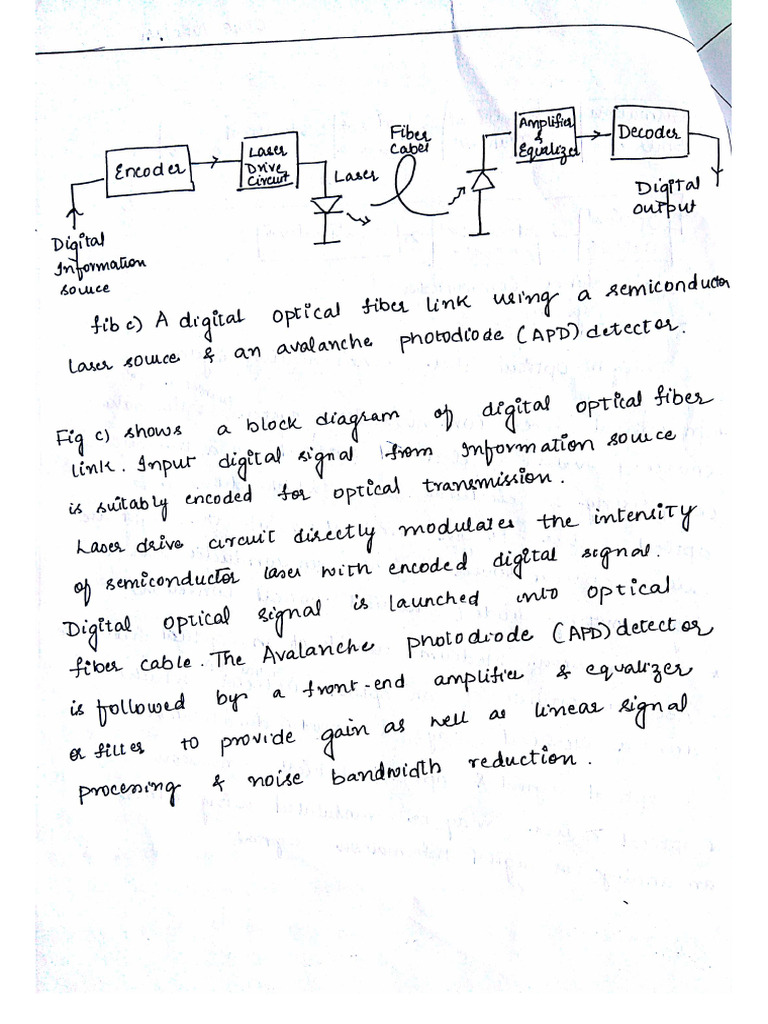 Encoder
Laser
Drive
Circuit
Laser
Fiber
Cabel
Amplifier
&
Equalizer
Decoder
Digital
Information
source
Digital
output
fib c) A digital optical fiber link using a semiconductor
laser source & an avalanche photodiode (APD) detector.
Fig c) shows a block diagram of digital optical fiber
link. Input digital signal from Information source
is suitably encoded for optical transmission.
Laser drive circuit directly modulates the intensity
of semiconductor laser with encoded digital signal.
Digital optical signal is launched into optical
fiber cable. The Avalanche photodiode (APD) detector
is followed by a front-end amplifier & equalizer
or filter to provide gain as well as linear signal
processing & noise bandwidth reduction.